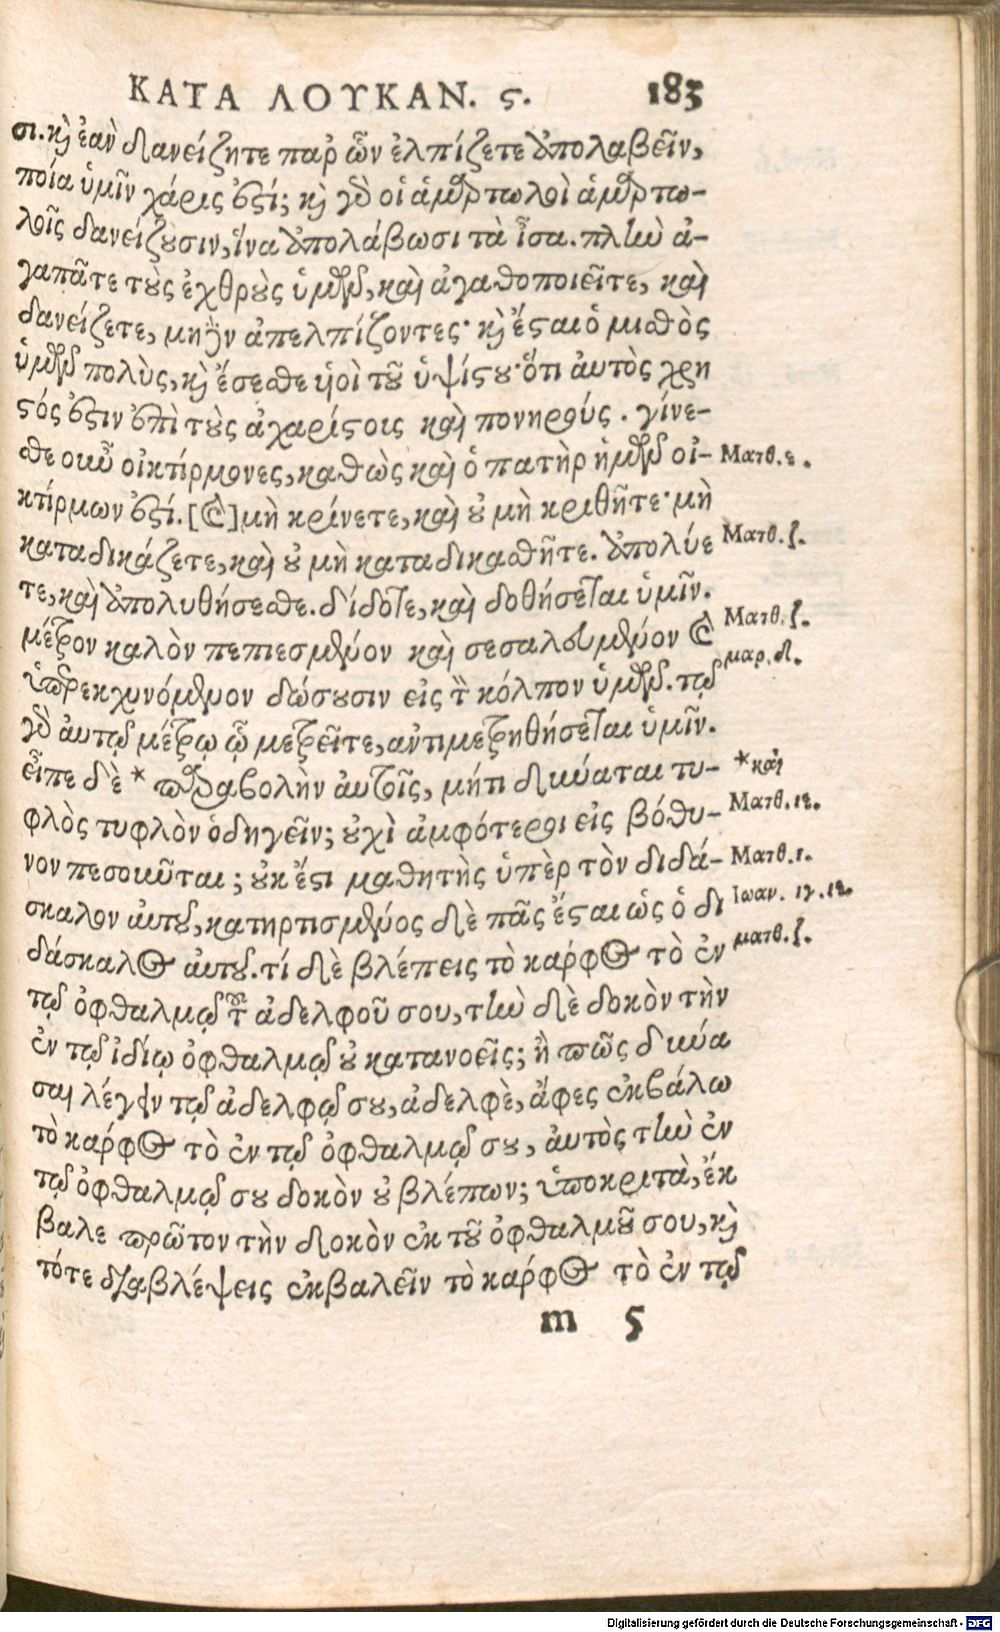 ΚΑΤΑ ΛΟΥΚΑΝ. ϛ. 183
σι. κỳ ἐὰν δανείζητε παρ ὧν ἐλπίζετε ἀπολαβεῖν,
ποία ὑμῖν χάρις ἐστί; κỳ γὸ οἱ ἁμαρτωλοὶ ἁμαρτω-
λοῖς δανείζουσιν, ἵνα ἀπολάβωσι τὰ ἶσα. πλὴν ἀ-
γαπᾶτε τοὺς ἐχθροὺς ὑμῶν, καὶ ἀγαθοποιεῖτε, καὶ
δανείζετε, μηδὲν ἀπελπίζοντες· κỳ ἔσται ὁ μισθὸς
ὑμῶν πολὺς, κỳ ἔσεσθε υἱοὶ τοῦ ὑψίστου· ὅτι ἀυτὸς χρη
στός ἐστιν ἐπὶ τοὺς ἀχαρίστοις καὶ πονηρούς. γίνε-
σθε οὖν οἰκτίρμονες, καθὼς καὶ ὁ πατὴρ ἡμῶν οἰ- Ματθ. ε.
κτίρμων ἐστί. [καὶ] μὴ κρίνετε, καὶ οὐ μὴ κριθῆτε· μὴ
καταδικάζετε, καὶ οὐ μὴ καταδικασθῆτε. ἀπολύε Ματθ. ζ.
τε, καὶ ἀπολυθήσεσθε. δίδοτε, καὶ δοθήσεται ὑμῖν.
μέτρον καλὸν πεπιεσμένον καὶ σεσαλευμένον καὶ Ματθ. ζ.
ὑπερεκχυνόμενον δώσουσιν εἰς τὸν κόλπον ὑμῶν. τῷ μαρ. δ.
γὸ ἀυτῷ μέτρῳ ᾧ μετρεῖτε, αντιμετρηθήσεται ὑμῖν.
εἶπε δὲ * παραβολὴν ἀυτοῖς, μήτι δύναται τυ- *καὶ
φλὸς τυφλὸν ὁδηγεῖν; οὐχὶ ἀμφότεροι εἰς βόθυ- Ματθ. ιε.
νον πεσοῦνται; οὐκ ἔστι μαθητὴς ὑπὲρ τὸν διδά- Ματθ. ι.
σκαλον ἀυτοῦ, κατηρτισμένος δὲ πᾶς ἔσται ὡς ὁ δι Ιωαν. ιγ. ιε.
δάσκαλος ἀυτοῦ. τί δὲ βλέπεις τὸ κάρφος τὸ ἐν ματθ. ζ.
τῷ ὀφθαλμῷ τοῦ ἀδελφοῦ σου, τὴν δὲ δοκὸν τὴν
ἐν τῷ ἰδίῳ ὀφθαλμῷ οὐ κατανοεῖς; ἢ πῶς δύνα
σαι λέγειν τῷ ἀδελφῷ σου, ἀδελφὲ, ἄφες ἐκβάλω
τὸ κάρφος τὸ ἐν τῷ ὀφθαλμῷ σου, ἀυτὸς τὴν ἐν
τῷ ὀφθαλμῷ σου δοκὸν οὐ βλέπων; ὑποκριτὰ, ἔκ
βαλε πρῶτον τὴν δοκὸν ἐκ τοῦ ὀφθαλμοῦ σου, κỳ
τότε διαβλέψεις ἐκβαλεῖν τὸ κάρφος τὸ ἐν τῷ
m 5
Digitalisierung gefördert durch die Deutsche Forschungsgemeinschaft - DFG